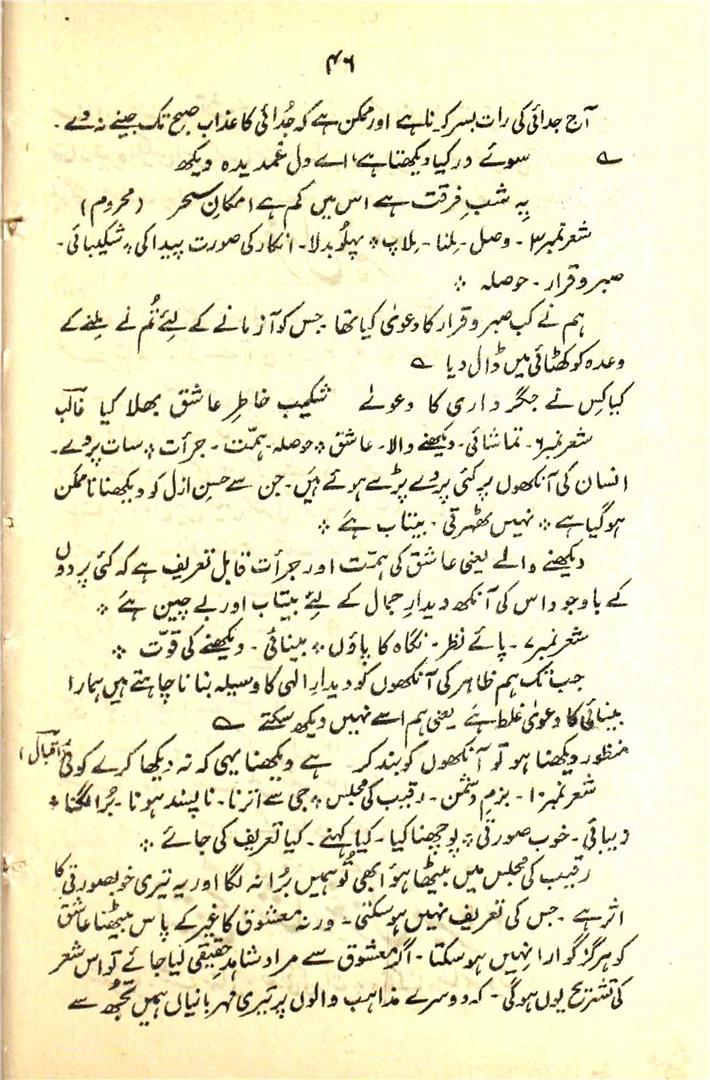 ۴۶
آج جدائی کی رات بسر کرنا ہے اور ممکن ہے کہ جُدائی کا عذاب صبح تک جینے نہ دے۔
؎ سوئے در کیا دیکھتا ہے، اے دل غمدیدہ دیکھ
یہ شبِ فرقت ہے اس میں کم ہے امکانِ سحر (محروم)
شعر نمبر ۳۔ وصل۔ مِلنا۔ مِلاپ ؞ پہلُو بدلا۔ انکار کی صورت پیدا کی ؞ شکیبائی۔
صبر و قرار۔ حوصلہ ؞
ہم نے کب صبر و قرار کا دعویٰ کیا تھا جس کو آزمانے کے لئے تُم نے ملنے کے
وعدہ کو کھٹائی میں ڈال دیا ؎
کیا کِس نے جگر داری کا دعوےٰ شکیبِ خاطرِ عاشق بھلا کیا غالبؔ
شعر نمبر ۶۔ تماشائی۔ دیکھنے والا۔ عاشق ؞ حوصلہ۔ ہمّت۔ جرأت ؞ سات پردے۔
انسان کی آنکھوں پر کئی پردے پڑے ہوئے ہیں۔ جن سے حسنِ ازل کو دیکھنا ناممکن
ہوگیا ہے ؞ نہیں ٹھہرتی۔ بیتاب ہے ؞
دیکھنے والے یعنی عاشق کی ہمّت اور جرأت قابل تعریف ہے کہ کئی پردوں
کے باوجود اس کی آنکھ دیدارِ جمال کے لئے بیتاب اور بے چین ہے ؞
شعر نمبر ۷۔ پائے نظر۔ نگاہ کا پاؤں ؞ بینائی۔ دیکھنے کی قوّت ؞
جب تک ہم ظاہر کی آنکھوں کو دیدارِ الٰہی کا وسیلہ بنانا چاہتے ہیں ہمارا
بینائی کا دعویٰ غلط ہے یعنی ہم اسے نہیں دیکھ سکتے ؎
منظور دیکھنا ہو تو آنکھوں کو بند کر ہے دیکھنا یہی کہ نہ دیکھا کرے کوئی (اقبالؔ)
شعر نمبر ۱۰۔ بزمِ دشمن۔ رقیب کی مجلس ؞ جی سے اترنا۔ ناپسند ہونا۔ بُرا لگنا ؞
زیبائی۔ خوب صورتی ؞ پوچھنا کیا۔ کیا کہنے۔ کیا تعریف کی جائے ؞
رقیب کی مجلس میں بیٹھا ہؤا بھی تُو ہمیں بُرا نہ لگا اور یہ تیری خوبصورتی کا
اثر ہے۔ جس کی تعریف نہیں ہوسکتی۔ ورنہ معشوق کا غیر کے پاس بیٹھنا عاشق
کو ہرگز گوارا نہیں ہوسکتا۔ اگر معشوق سے مراد شاہدِ حقیقی لیا جائے تو اس شعر
کی تشریح یوں ہوگی۔ کہ دوسرے مذاہب والوں پر تیری مہربانیاں ہمیں تجھُ سے